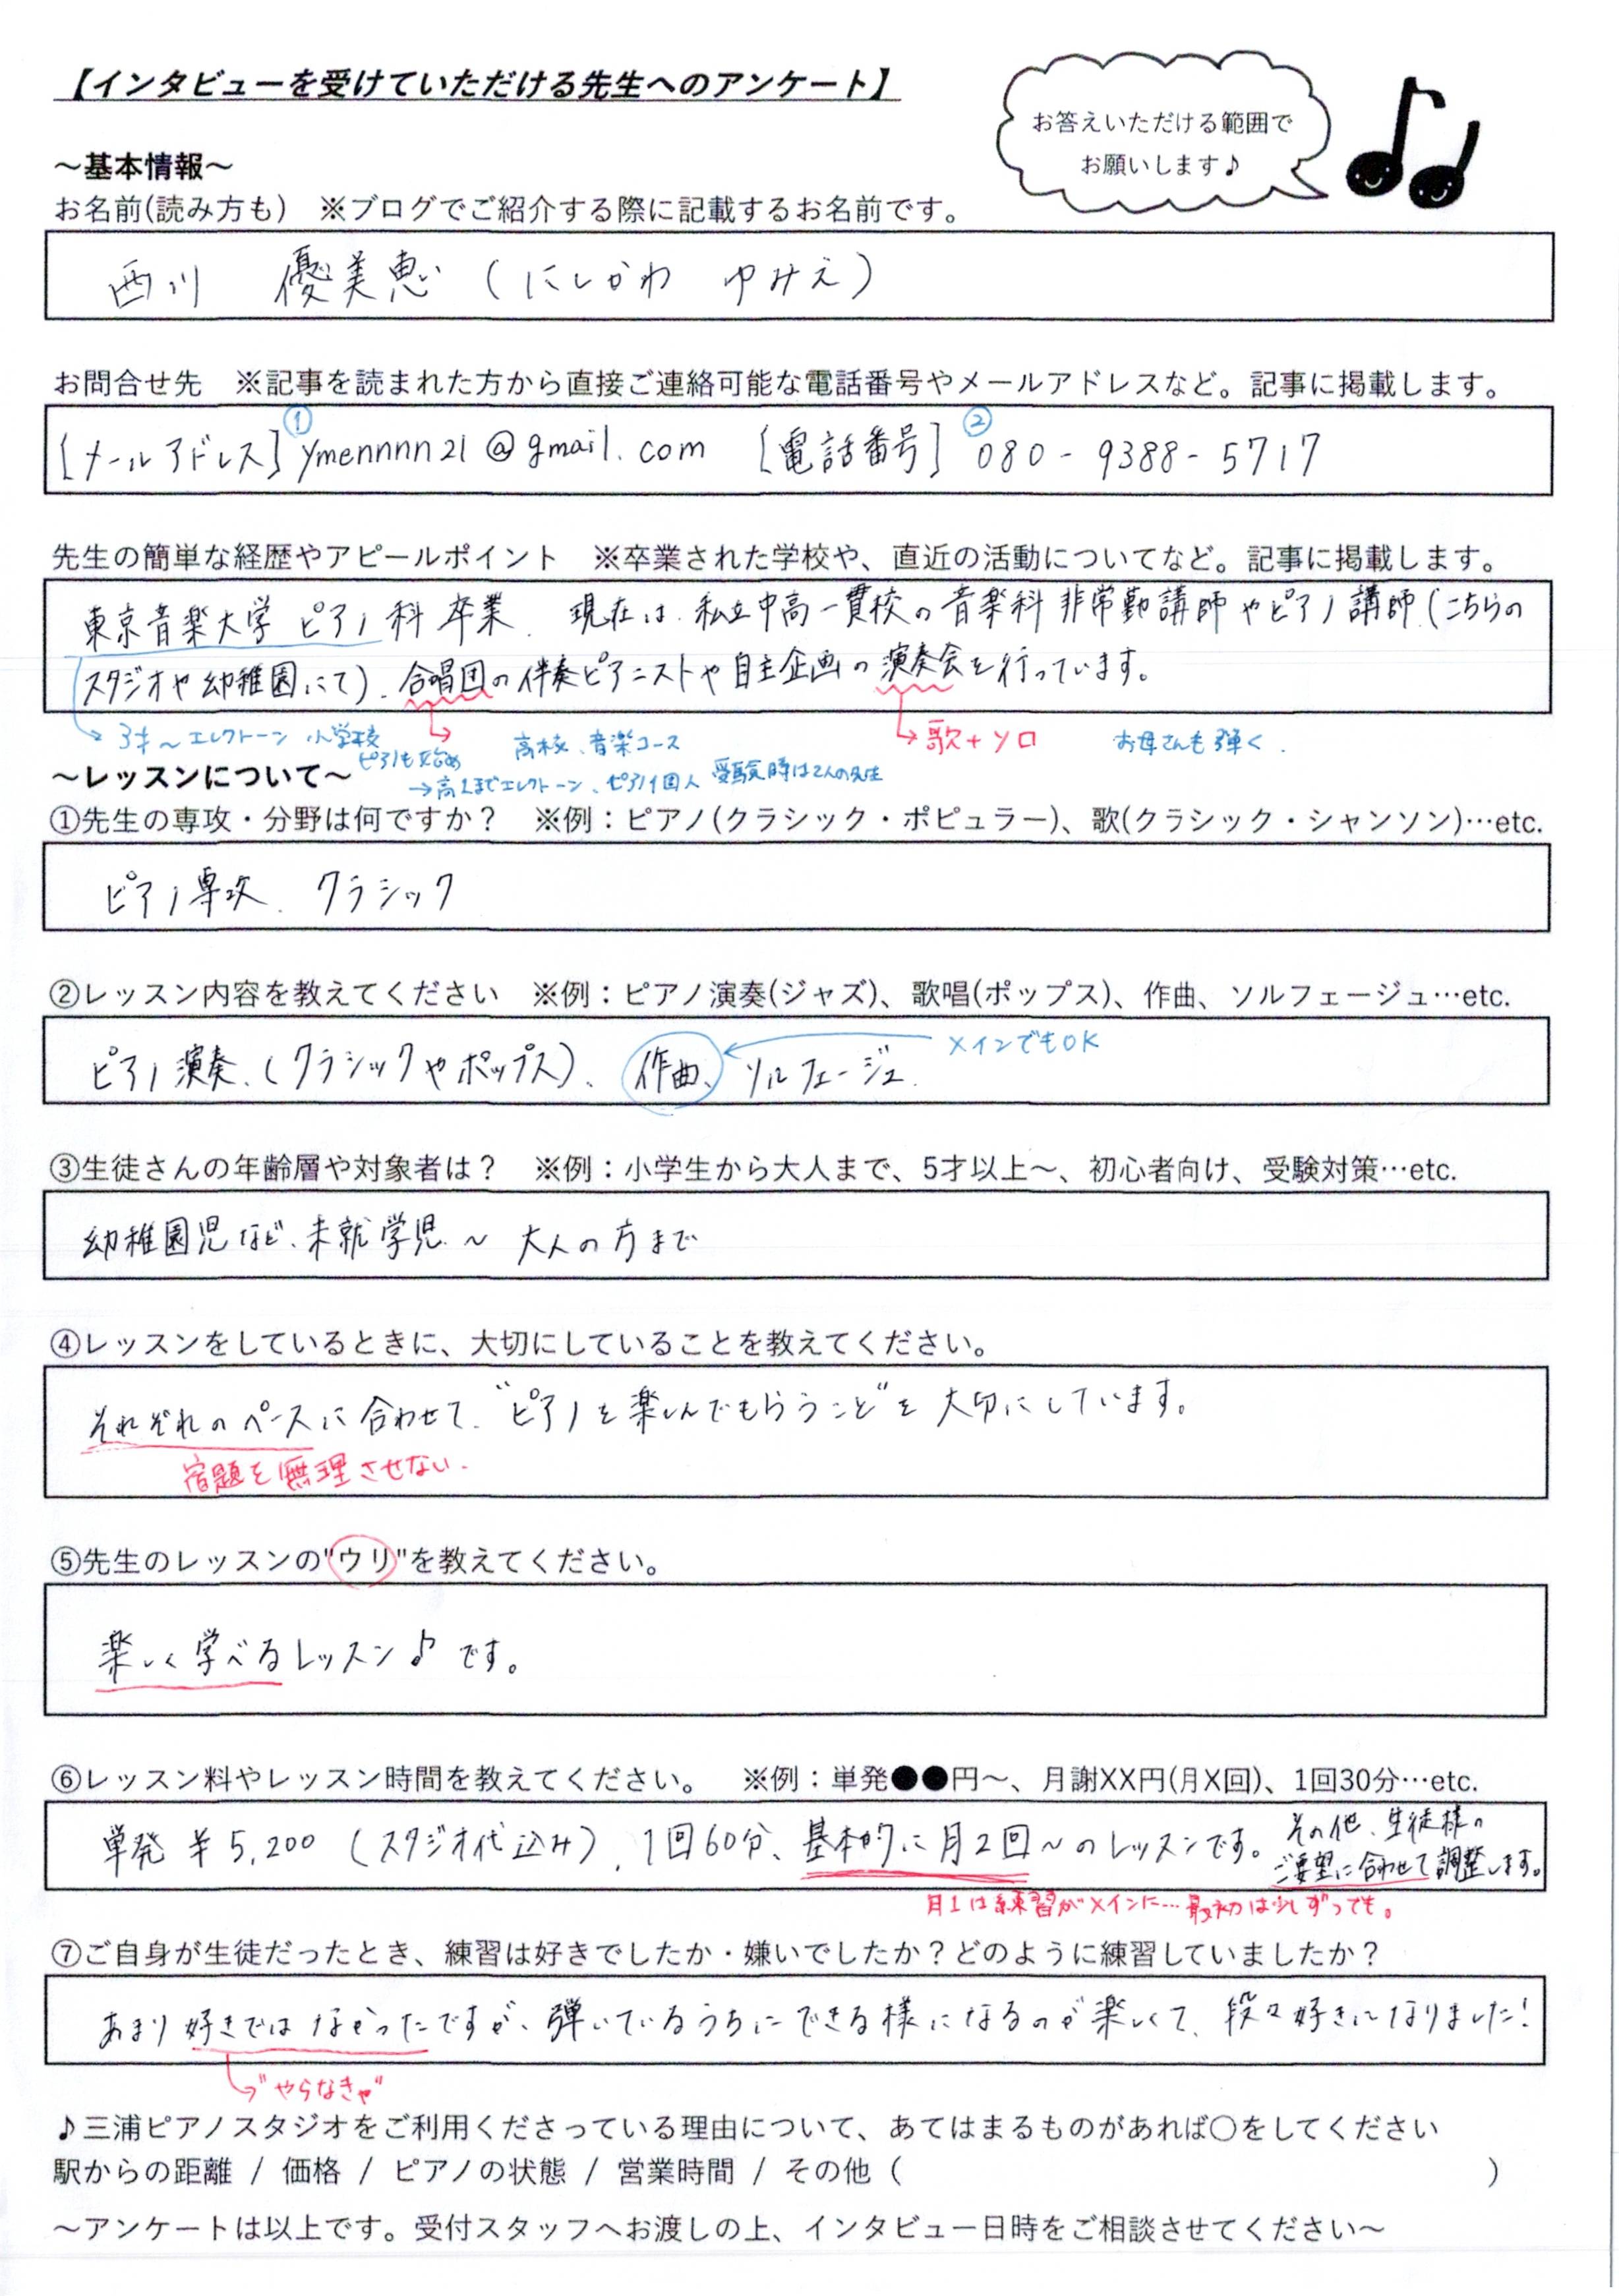 【インタビューを受けていただける先生へのアンケート】
お答えいただける範囲で
お願いします♪
～基本情報～
お名前(読み方も)　※ブログでご紹介する際に記載するお名前です。
西川　優美恵（にしかわ　ゆみえ）
お問合せ先　※記事を読まれた方から直接ご連絡可能な電話番号やメールアドレスなど。記事に掲載します。
①　②
[メールアドレス] ymennnn21@gmail.com　[電話番号] 080-9388-5717
先生の簡単な経歴やアピールポイント　※卒業された学校や、直近の活動についてなど。記事に掲載します。
東京音楽大学 ピアノ科 卒業、現在は、私立中高一貫校の音楽科非常勤講師やピアノ講師（こちらの
スタジオや幼稚園にて）、合唱団の伴奏ピアニストや自主企画の演奏会を行っています。
3才～エレクトーン 小学校　ピアノも始め　高校、音楽コース　歌+ソロ　お母さんも弾く.
～レッスンについて～
→高1までエレクトーン、ピアノ個人 受験時は2人の先生
①先生の専攻・分野は何ですか？　※例：ピアノ(クラシック・ポピュラー)、歌(クラシック・シャンソン)…etc.
ピアノ専攻、クラシック
②レッスン内容を教えてください　※例：ピアノ演奏(ジャズ)、歌唱(ポップス)、作曲、ソルフェージュ…etc.
メインでもOK
ピアノ演奏、（クラシックやポップス）、作曲、ソルフェージュ
③生徒さんの年齢層や対象者は？　※例：小学生から大人まで、5才以上～、初心者向け、受験対策…etc.
幼稚園児など、未就学児 ～ 大人の方まで
④レッスンをしているときに、大切にしていることを教えてください。
それぞれのペースに合わせて、“ピアノを楽しんでもらうこと”を大切にしています。
宿題を無理させない.
⑤先生のレッスンの"ウリ"を教えてください。
楽しく学べるレッスン♪です。
⑥レッスン料やレッスン時間を教えてください。　※例：単発●●円～、月謝XX円(月X回)、1回30分…etc.
単発￥5,200（スタジオ代込み）、1回60分、基本的に月2回～のレッスンです。その他、生徒様の
ご要望に合わせて調整します。
月1は練習がメインに… 最初は少しずつでも。
⑦ご自身が生徒だったとき、練習は好きでしたか・嫌いでしたか？どのように練習していましたか？
あまり好きではなかったですが、弾いているうちにできる様になるのが楽しくて、段々好きになりました！
“やらなきゃ”
♪三浦ピアノスタジオをご利用くださっている理由について、あてはまるものがあれば○をしてください
駅からの距離 / 価格 / ピアノの状態 / 営業時間 / その他（　　　）
～アンケートは以上です。受付スタッフへお渡しの上、インタビュー日時をご相談させてください～